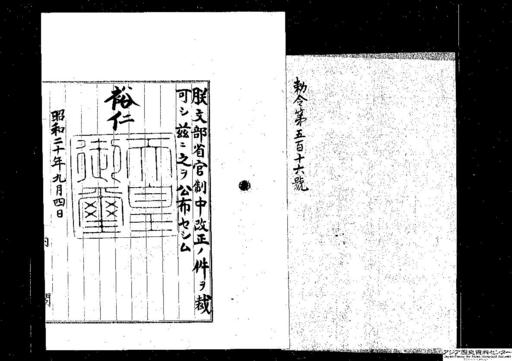 勅令第五百十六號
朕文部省官制中改正ノ件ヲ裁
可シ茲ニ之ヲ公布セシム
裕仁
天皇
御璽
昭和二十年九月四日
内
閣
アジア歴史資料センター